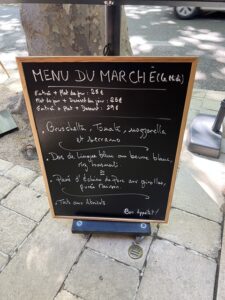 MENU DU MARCHÉ
Entrée + Plat du jour : 25€
Plat du jour + Dessert du jour : 25€
Entrée + Plat + Dessert : 29€
Bruschetta, Tomate, mozzarella
et serrano
Dos de Lingue bleue au beurre blanc,
riz basmati
Pavé d'Echine de Porc aux girolles,
purée maison
Tarte aux Abricots
Bon Appétit !